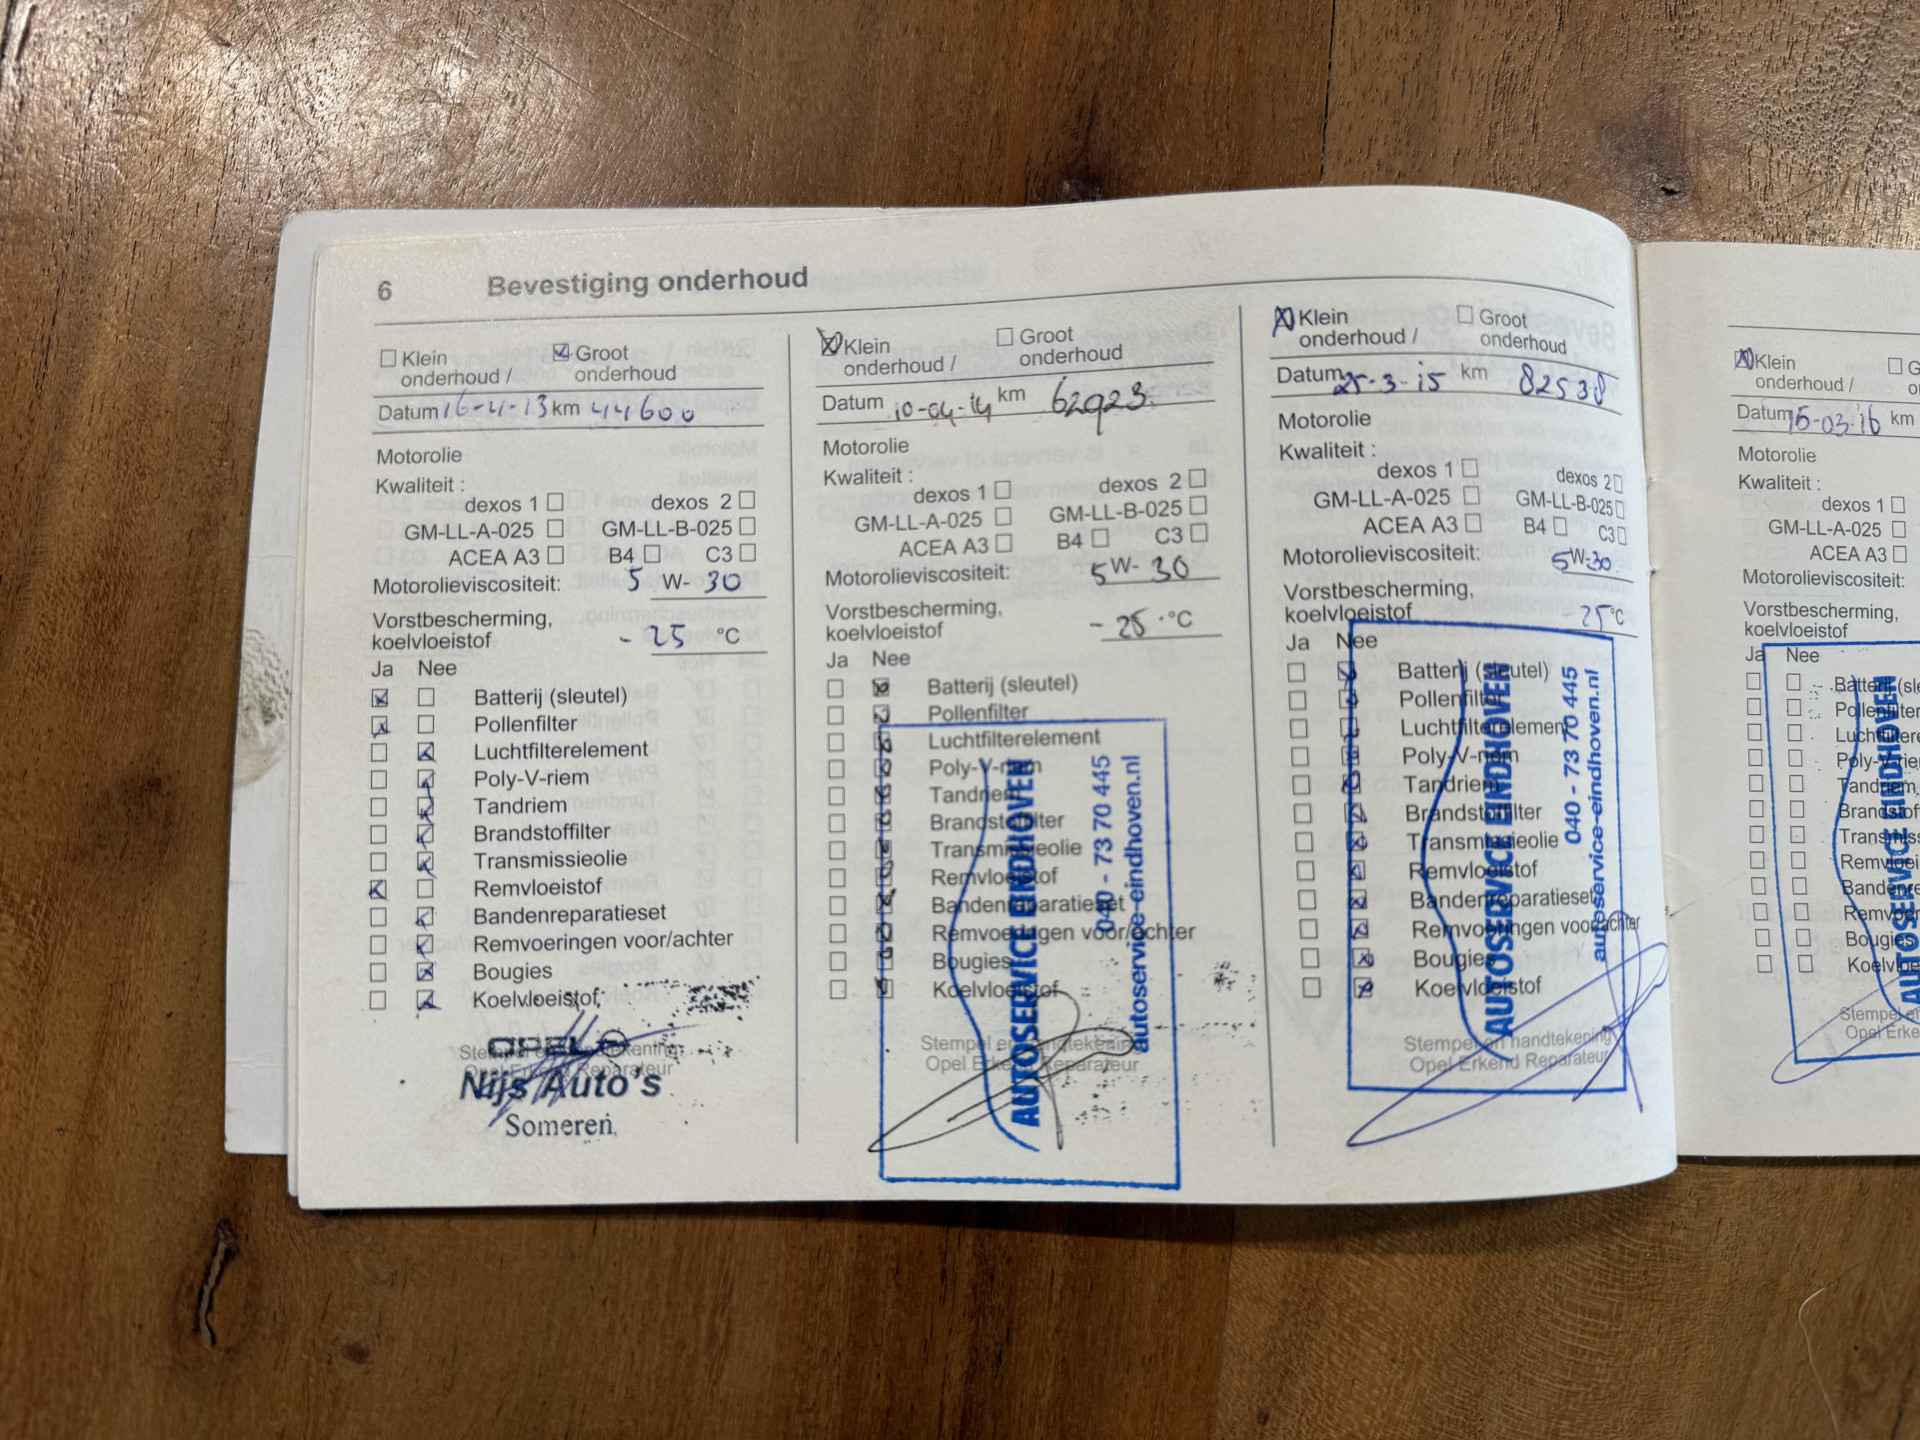 6 Bevestiging onderhoud
Klein onderhoud / Groot onderhoud
Datum 16-4-13 km 44600
Motorolie
Kwaliteit :
dexos 1 dexos 2
GM-LL-A-025 GM-LL-B-025
ACEA A3 B4 C3
Motorolieviscositeit: 5 W- 30
Vorstbescherming,
koelvloeistof - 25 °C
Ja Nee
Batterij (sleutel)
Pollenfilter
Luchtfilterelement
Poly-V-riem
Tandriem
Brandstoffilter
Transmissieolie
Remvloeistof
Bandenreparatieset
Remvoeringen voor/achter
Bougies
Koelvloeistof
Stempel en handtekening
Opel Erkend Reparateur
OPEL
Nijs Auto's
Someren
Klein onderhoud / Groot onderhoud
Datum 10-04-14 km 62923
Motorolie
Kwaliteit :
dexos 1 dexos 2
GM-LL-A-025 GM-LL-B-025
ACEA A3 B4 C3
Motorolieviscositeit: 5 W- 30
Vorstbescherming,
koelvloeistof - 25 °C
Ja Nee
Batterij (sleutel)
Pollenfilter
Luchtfilterelement
Poly-V-riem
Tandriem
Brandstoffilter
Transmissieolie
Remvloeistof
Bandenreparatieset
Remvoeringen voor/achter
Bougies
Koelvloeistof
Stempel en handtekening
Opel Erkend Reparateur
AUTOSERVICE EINDHOVEN
040 - 73 70 445
autoservice-eindhoven.nl
Klein onderhoud / Groot onderhoud
Datum 25-3-15 km 82538
Motorolie
Kwaliteit :
dexos 1 dexos 2
GM-LL-A-025 GM-LL-B-025
ACEA A3 B4 C3
Motorolieviscositeit: 5 W- 30
Vorstbescherming,
koelvloeistof - 25 °C
Ja Nee
Batterij (sleutel)
Pollenfilter
Luchtfilterelement
Poly-V-riem
Tandriem
Brandstoffilter
Transmissieolie
Remvloeistof
Bandenreparatieset
Remvoeringen voor/achter
Bougies
Koelvloeistof
Stempel en handtekening
Opel Erkend Reparateur
AUTOSERVICE EINDHOVEN
040 - 73 70 445
autoservice-eindhoven.nl
Klein onderhoud /
Datum 15-03-16 km
Motorolie
Kwaliteit :
dexos 1
GM-LL-A-025
ACEA A3
Motorolieviscositeit:
Vorstbescherming,
koelvloeistof
Ja Nee
Tandriem
Bougies
Stempel
Opel Erkend
AUTOSERVICE EINDHOVEN